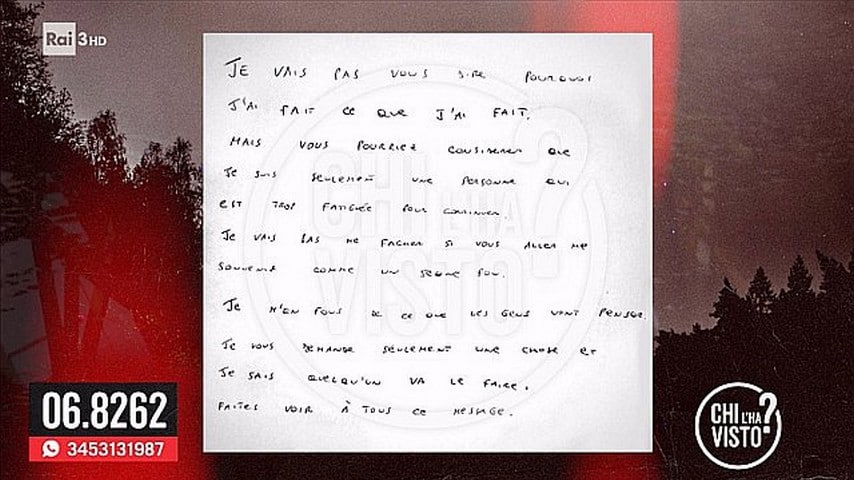 Rai 3HD
JE VAIS PAS VOUS DIRE POURQUOI
J'AI FAIT CE QUE J'AI FAIT.
MAIS VOUS POURRIEZ CONSIDERER QUE
JE SUIS SEULEMENT UNE PERSONNE QUI
EST TROP FATIGUÉE POUR CONTINUER.
JE VAIS PAS ME FACHER SI VOUS ALLER ME
SOUVENIR COMME UN JEUNE FOU.
JE M'EN FOUS DE CE QUE LES GENS VONT PENSER.
JE VOUS DEMANDE SEULEMENT UNE CHOSE ET
JE SAIS QUELQU'UN VA LE FAIRE.
FAITES VOIR À TOUS CE MESSAGE.
CHI L'HA VISTO?
06.8262
3453131987
CHI L'HA
VISTO?